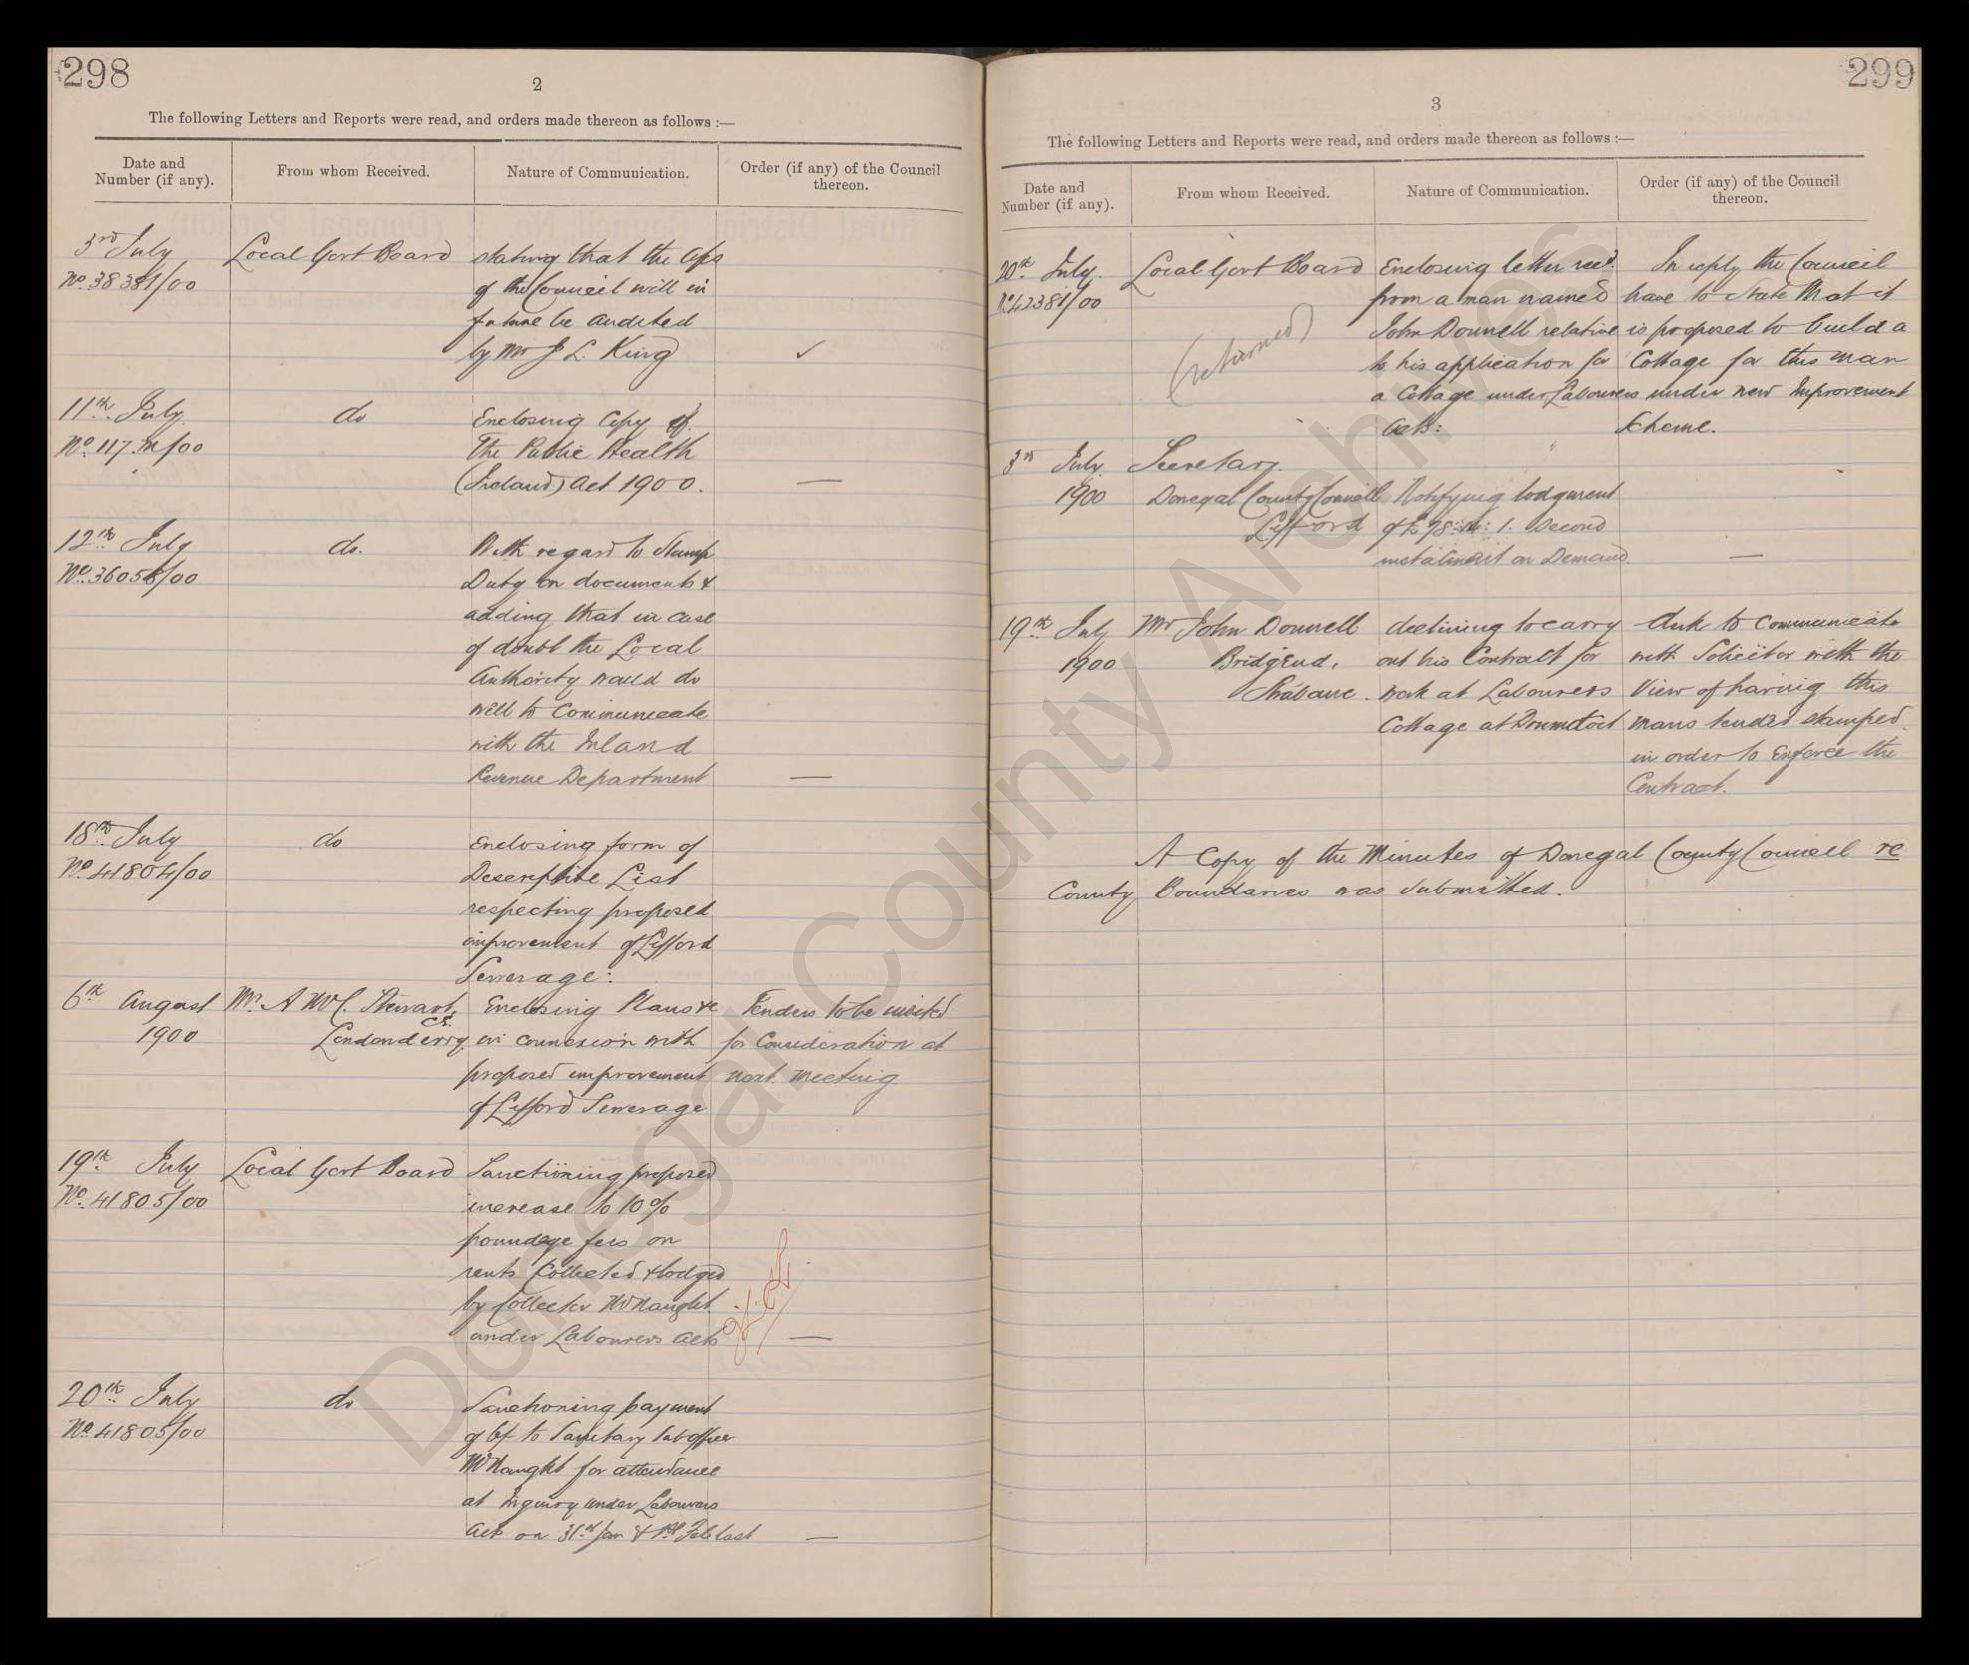 298
2
The following Letters and Reports were read, and orders made thereon as follows :—
Date and
Number (if any).
From whom Received.
Nature of Communication.
Order (if any) of the Council
thereon.
3rd July
No. 38381/00
Local Govt Board
stating that the a/cs
of the Council will in
future be audited
by Mr J L. King
✓
11th July
No. 117.M/00
do
Enclosing Copy of
The Public Health
(Ireland) Act 1900.
—
12th July
No. 36058/00
do.
With regard to Stamp
Duty on documents &
adding that in case
of doubt the Local
Authority would do
well to Communicate
with the Inland
Revenue Department
—
18th July
No. 41804/00
do
Enclosing form of
Descriptive List
respecting proposed
improvement of Lifford
Sewerage:
6th August
1900
Mr. A McC. Stewart,
C.E.
Londonderry
Enclosing Plans &c
in connexion with
proposed improvement
of Lifford Sewerage
Tenders to be invited
for Consideration at
next meeting
19th July
No. 41805/00
Local Govt Board
Sanctioning proposed
increase to 10%
poundage fees on
rents Collected & lodged
by Collector McNaught
under Labourers Acts
—
20th July
No. 41805/00
do
Sanctioning payment
of to Sanitary Sub officer
McNaught for attendance
at Inquiry under Labourers
Acts on 31st Jan & 1st Feb last
—
299
3
The following Letters and Reports were read, and orders made thereon as follows :—
Date and
Number (if any).
From whom Received.
Nature of Communication.
Order (if any) of the Council
thereon.
20th July.
No. 42381/00
Local Govt Board
(returned)
Enclosing letter recd.
from a man named
John Donnell relative
to his application for
a Cottage under Labourers
Acts:
In reply the Council
have to state that it
is proposed to build a
Cottage for this man
under new Improvement
Scheme.
3rd July.
1900
Secretary.
Donegal County Council
Lifford
Notifying lodgment
of £ 78: : 1. Second
instalment on Demand.
—
19th July
1900
Mr John Donnell
BridgEnd,
Strabane.
declining to carry
out his Contract for
work at Labourers
Cottage at
Clerk to Communicate
with Solicitor with the
View of having this
mans tender stamped
in order to Enforce the
Contract.
A Copy of the Minutes of Donegal County Council re
County Boundaries was submitted.
Donegal County Archives